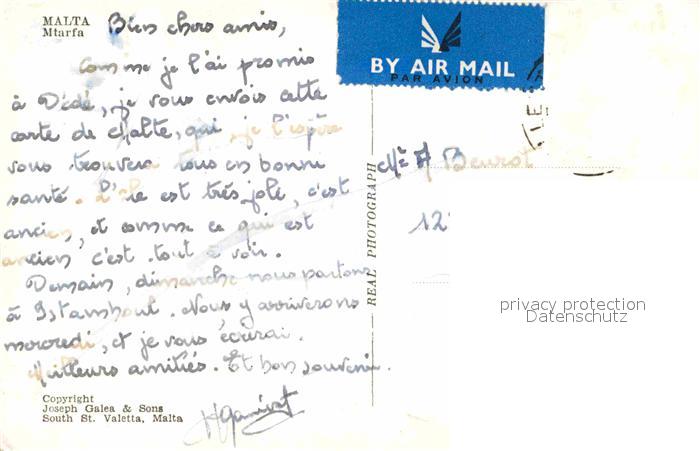 MALTA
Mtarfa
Bien chers amis,
Comme je l'ai promis
à Dédé, je vous envois cette
carte de Malte, qui, je l'espère
vous trouvera tous en bonne
santé. L'île est très jolie, c'est
ancien, et comme ce qui est
ancien c'est tout à voir.
Demain, dimanche nous partons
à Istamboul. Nous y arriverons
mercredi, et je vous écrirai.
Meilleurs amitiés. Et bon souvenir.
Copyright
Joseph Galea & Sons
South St. Valetta, Malta
REAL PHOTOGRAPH
BY AIR MAIL
PAR AVION
12
privacy protection
Datenschutz